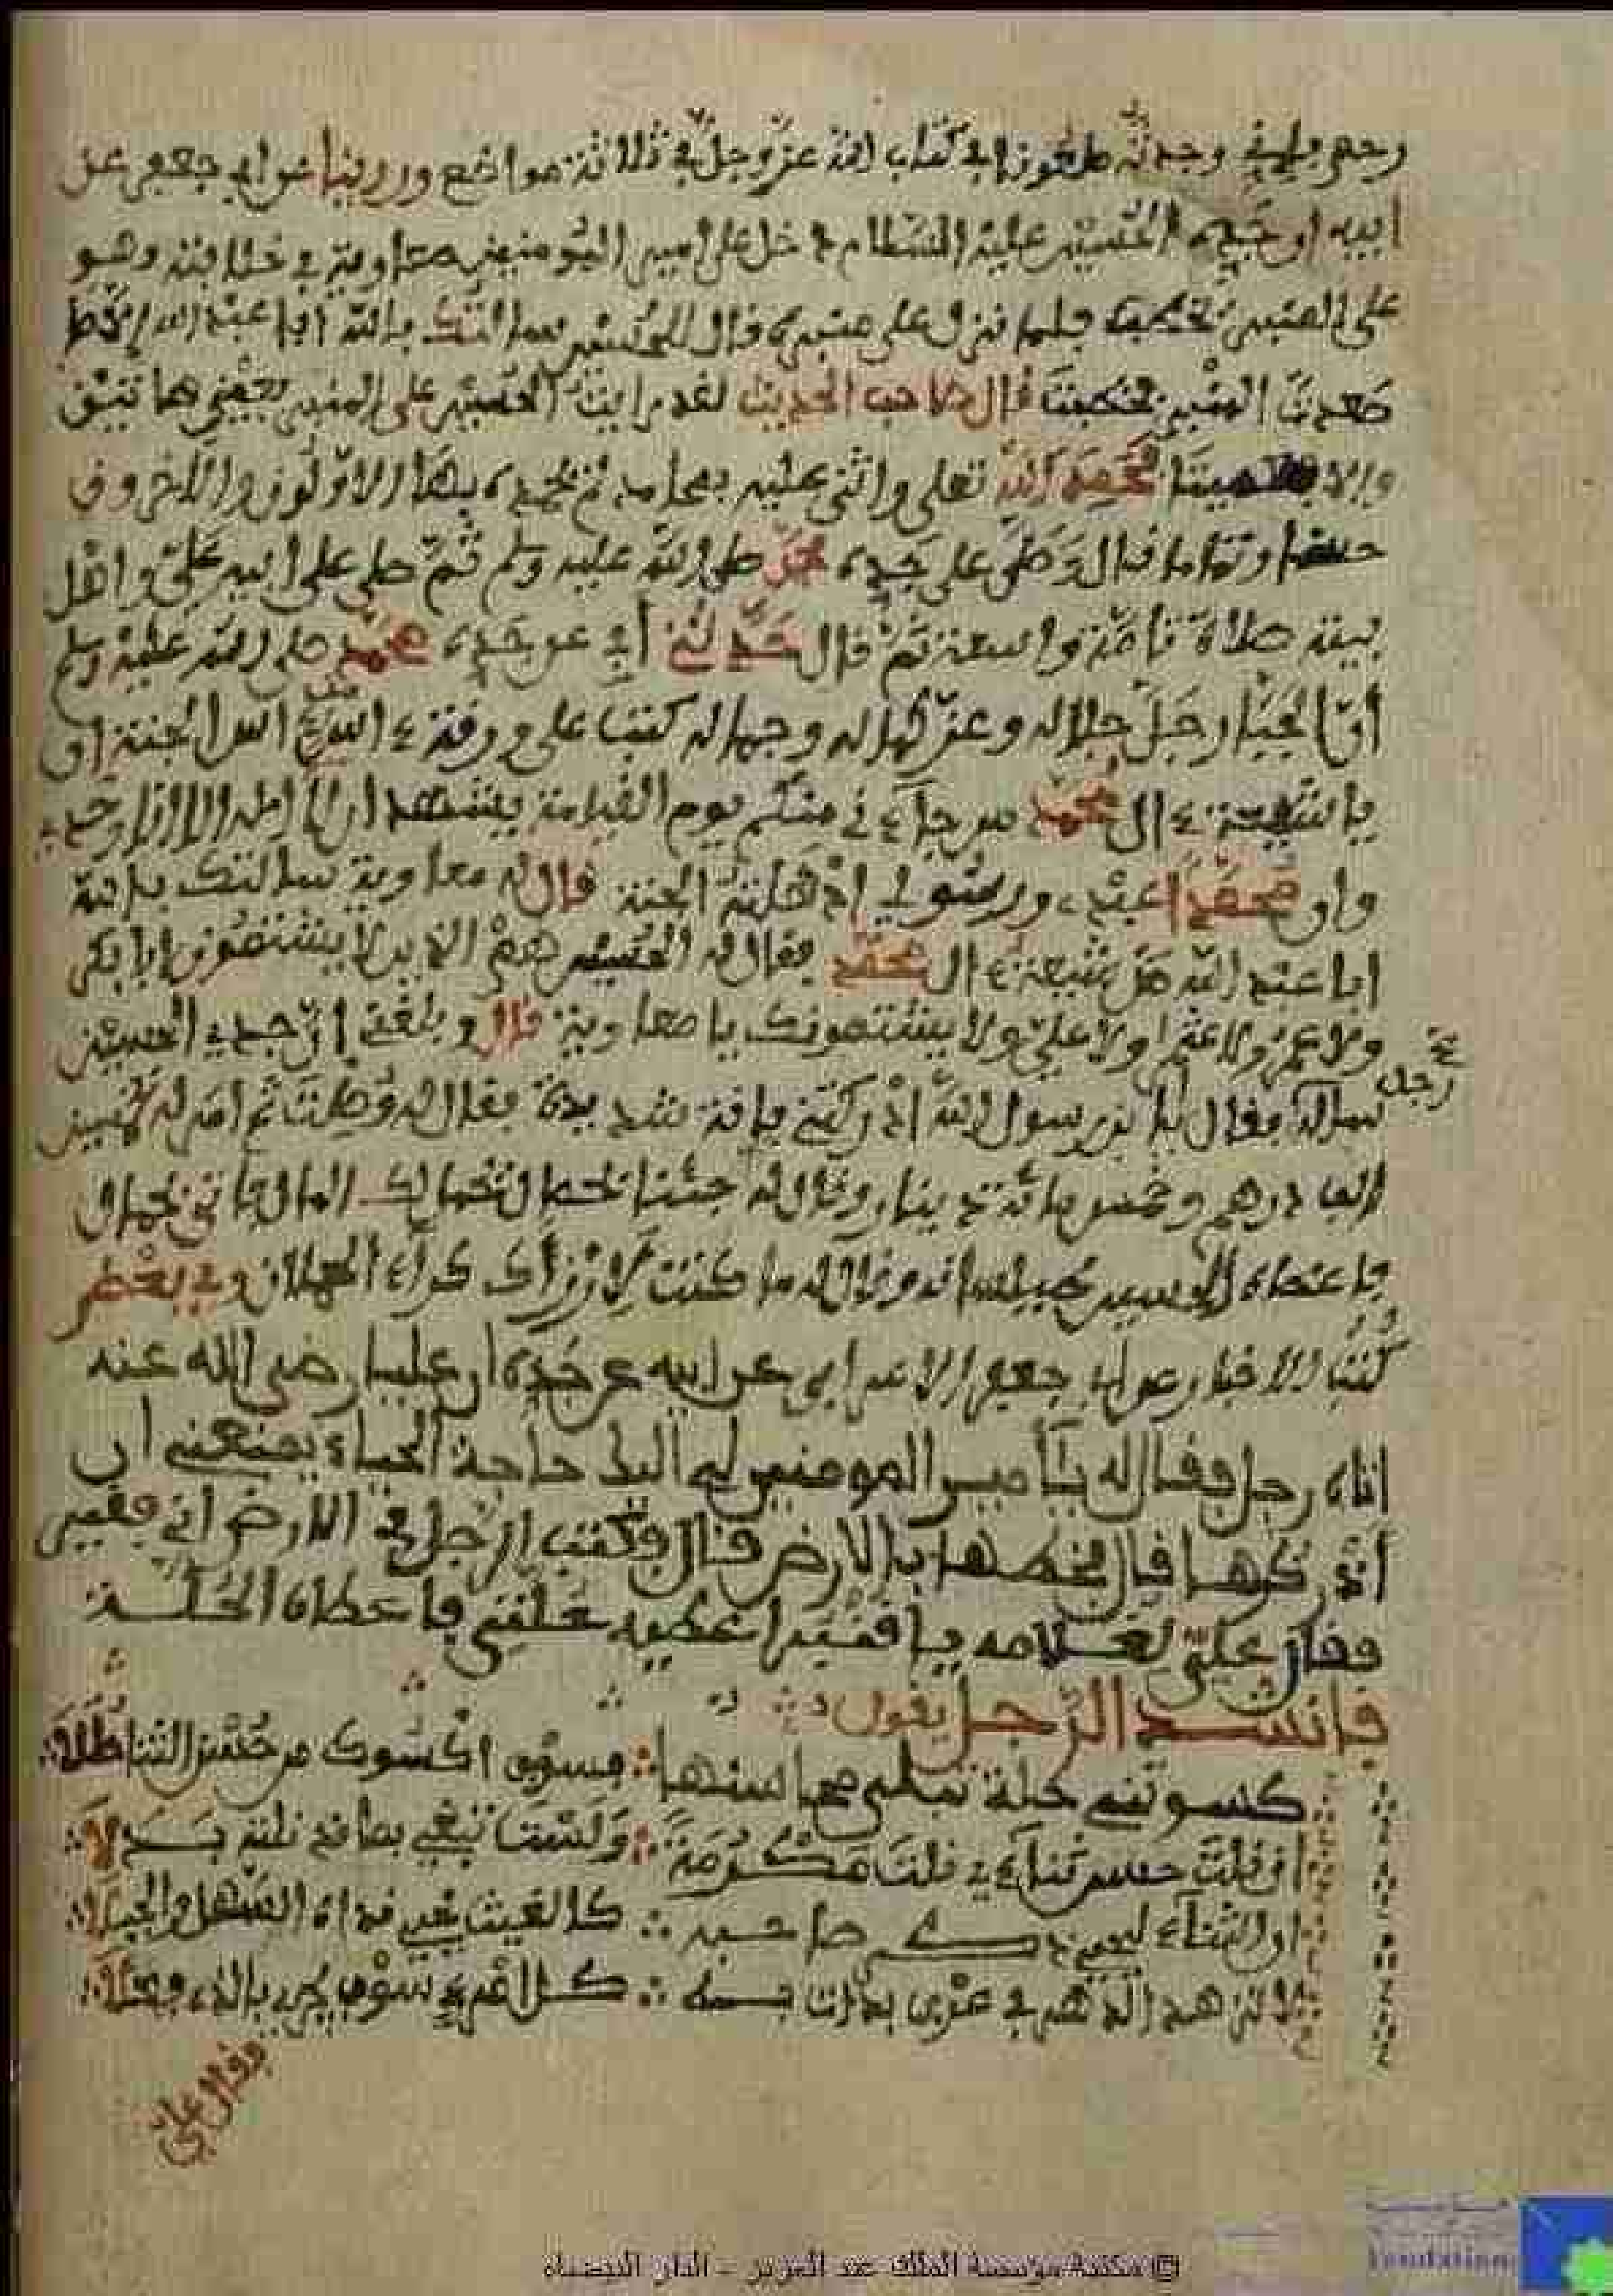 وجدته في كتاب الله عز وجل في ثلاثة مواضع وروينا عن ابي جعفر عن
ابيه ان جده الحسين عليه السلام دخل على امير المومنين معاوية في خلافته وهو
على المنبر يخطب فلما نزل على منبره قال للحسين سالتك بالله أبا عبد الله إلا
صعدت المنبر فخطبت قال صاحب الحديث لقد رايت الحسين على المنبر
فحمد الله تعلى واثنى عليه بمحامد لم يحمده بها الاولون والاخرون
قال وصلى على جده محمد صلى الله عليه وسلم ثم صلى على ابيه علي واهل
بيته صلاة تامة واسعة ثم قال حدثني أبي عن جده محمد صلى الله عليه وسلم
أن الجبار جل جلاله وعز وجماله كتب على ورقة من اس الجنة ان
يا شيعة ءال محمد من جاءني منكم يوم القيامة يشهد ان لا اله الا انا وحدي
وان محمدا عبدي ورسولي ادخلته الجنة قال له معاوية سالتك بالله
ابا عبد الله من شيعة ءال محمد فقال له الحسين هم الذين لا يشتمون ابا بكر
ولا عمر ولا عثمان ولا علي ولا يشتمونك يا معاوية قال وبلغني ان جدي الحسين
رجل
ساله فقال يا بن رسول الله ادركتني فاقة شديدة فقال له وصلت ثم امر له
الف درهم وخمس مائة دينار وقال له جئنا بحمال نحمل لك المال فاتى بحمال
فاعطاه الحسين طيلسانه وقال له ما كنت لارزأك كراء الحمال وفي بعض
كتب الاخبار عن ابي جعفر الاعرابي عن ابيه عن جده ان عليا رضي الله عنه
اتاه رجل فقال له يا أمير المومنين لي اليك حاجة الحياء يمنعني ان
أذكرها قال فخطها بالارض قال فكتب الرجل في الارض أني فقير
فقال علي لغلامه يا قنبر اعطيه حلتي فاعطاه الحلة
فانشد الرجل يقول
كسوتني حلة تبلى محاسنها فسوف اكسوك من حسن الثنا حللا
ان نلت حسن ثناءي نلت مكرمة ولست تبغي بما قد نلته بدلا
ان الثناء ليحيي ذكر صاحبه كالغيث يحيي نداه السهل والجبلا
لا تزهد الدهر في عرف بدات به كل امرئ سوف يجزى بالذي فعلا
فقال علي
© مكتبة مؤسسة الملك عبد العزيز - الدار البيضاء
Fondation